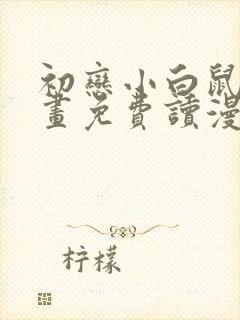 初戀小白鼠
畫免費讀漫
柠檬